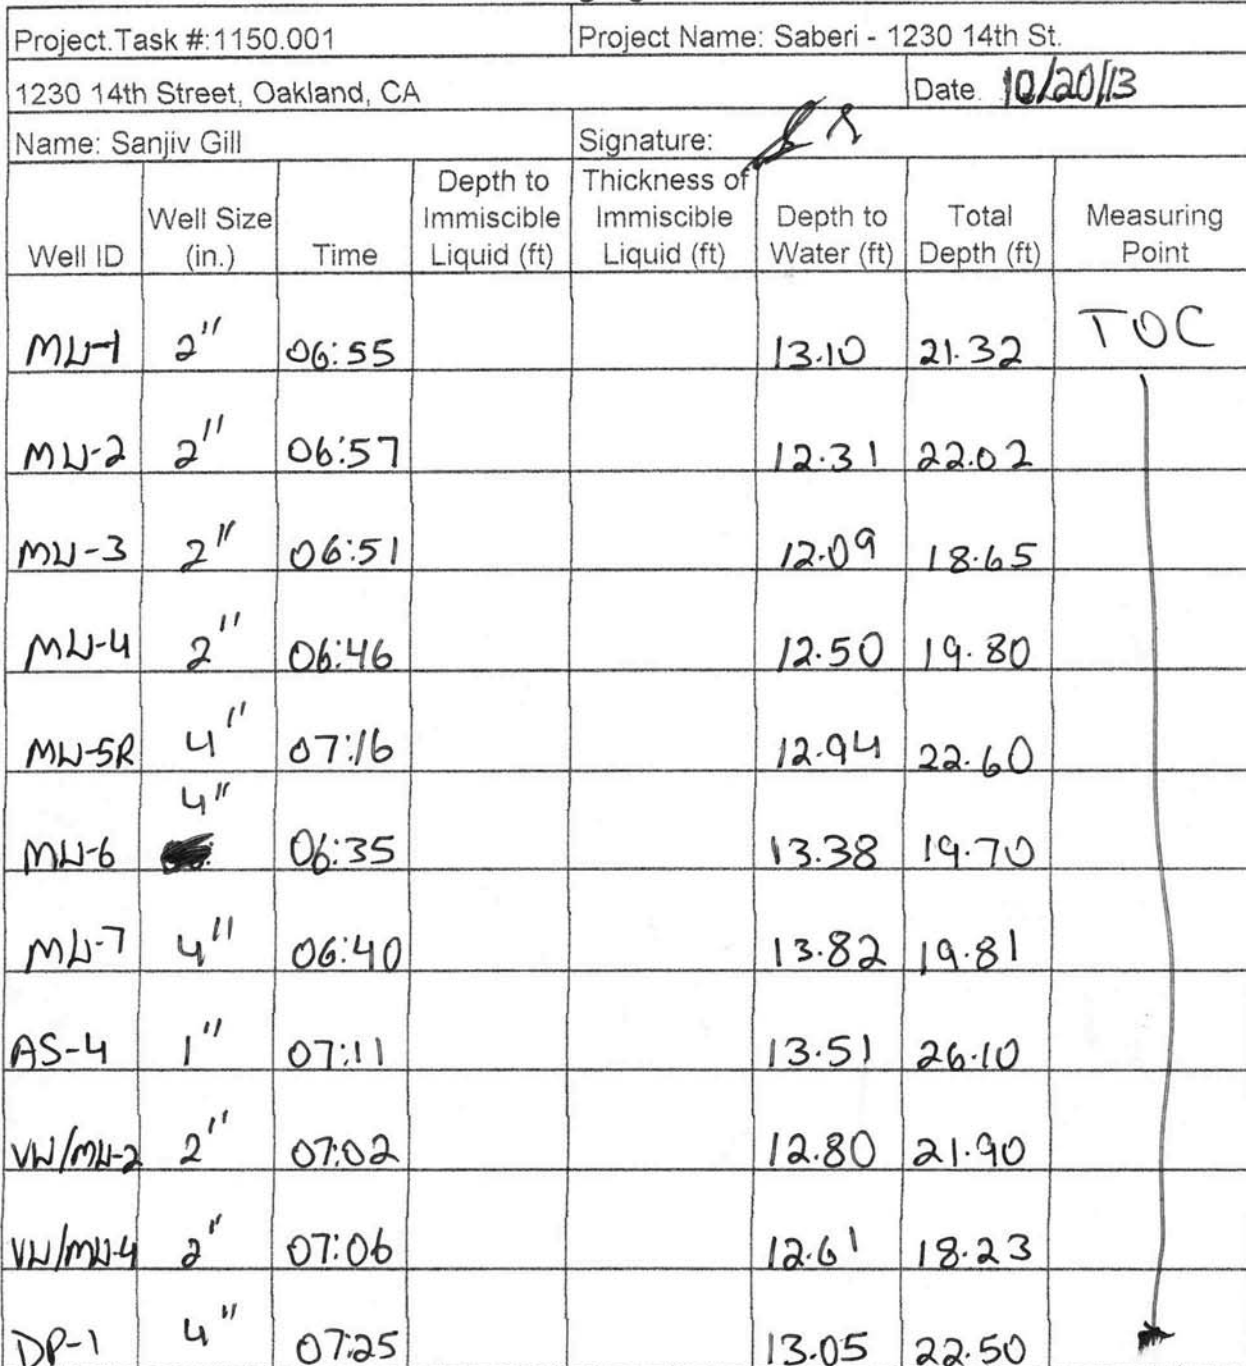 Project.Task #:1150.001 Project Name: Saberi - 1230 14th St.
1230 14th Street, Oakland, CA Date. 10/20/13
Name: Sanjiv Gill Signature:
Well ID Well Size (in.) Time Depth to Immiscible Liquid (ft) Thickness of Immiscible Liquid (ft) Depth to Water (ft) Total Depth (ft) Measuring Point
MW-1 2" 06:55 13.10 21.32 TOC
MW-2 2" 06:57 12.31 22.02
MW-3 2" 06:51 12.09 18.65
MW-4 2" 06:46 12.50 19.80
MW-5R 4" 07:16 12.94 22.60
MW-6 4" 06:35 13.38 19.70
MW-7 4" 06:40 13.82 19.81
AS-4 1" 07:11 13.51 26.10
VW/MW-2 2" 07:02 12.80 21.90
VW/MW-4 2" 07:06 12.61 18.23
DP-1 4" 07:25 13.05 22.50